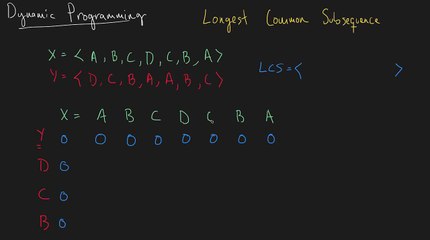 Dynamic Programming
Longest Common Subsequence
X = < A, B, C, D, C, B, A >
Y = < D, C, B, A, A, B, C >
LCS = < >
X = A B C D C B A
Y 0 0 0 0 0 0 0 0
D 0
C 0
B 0